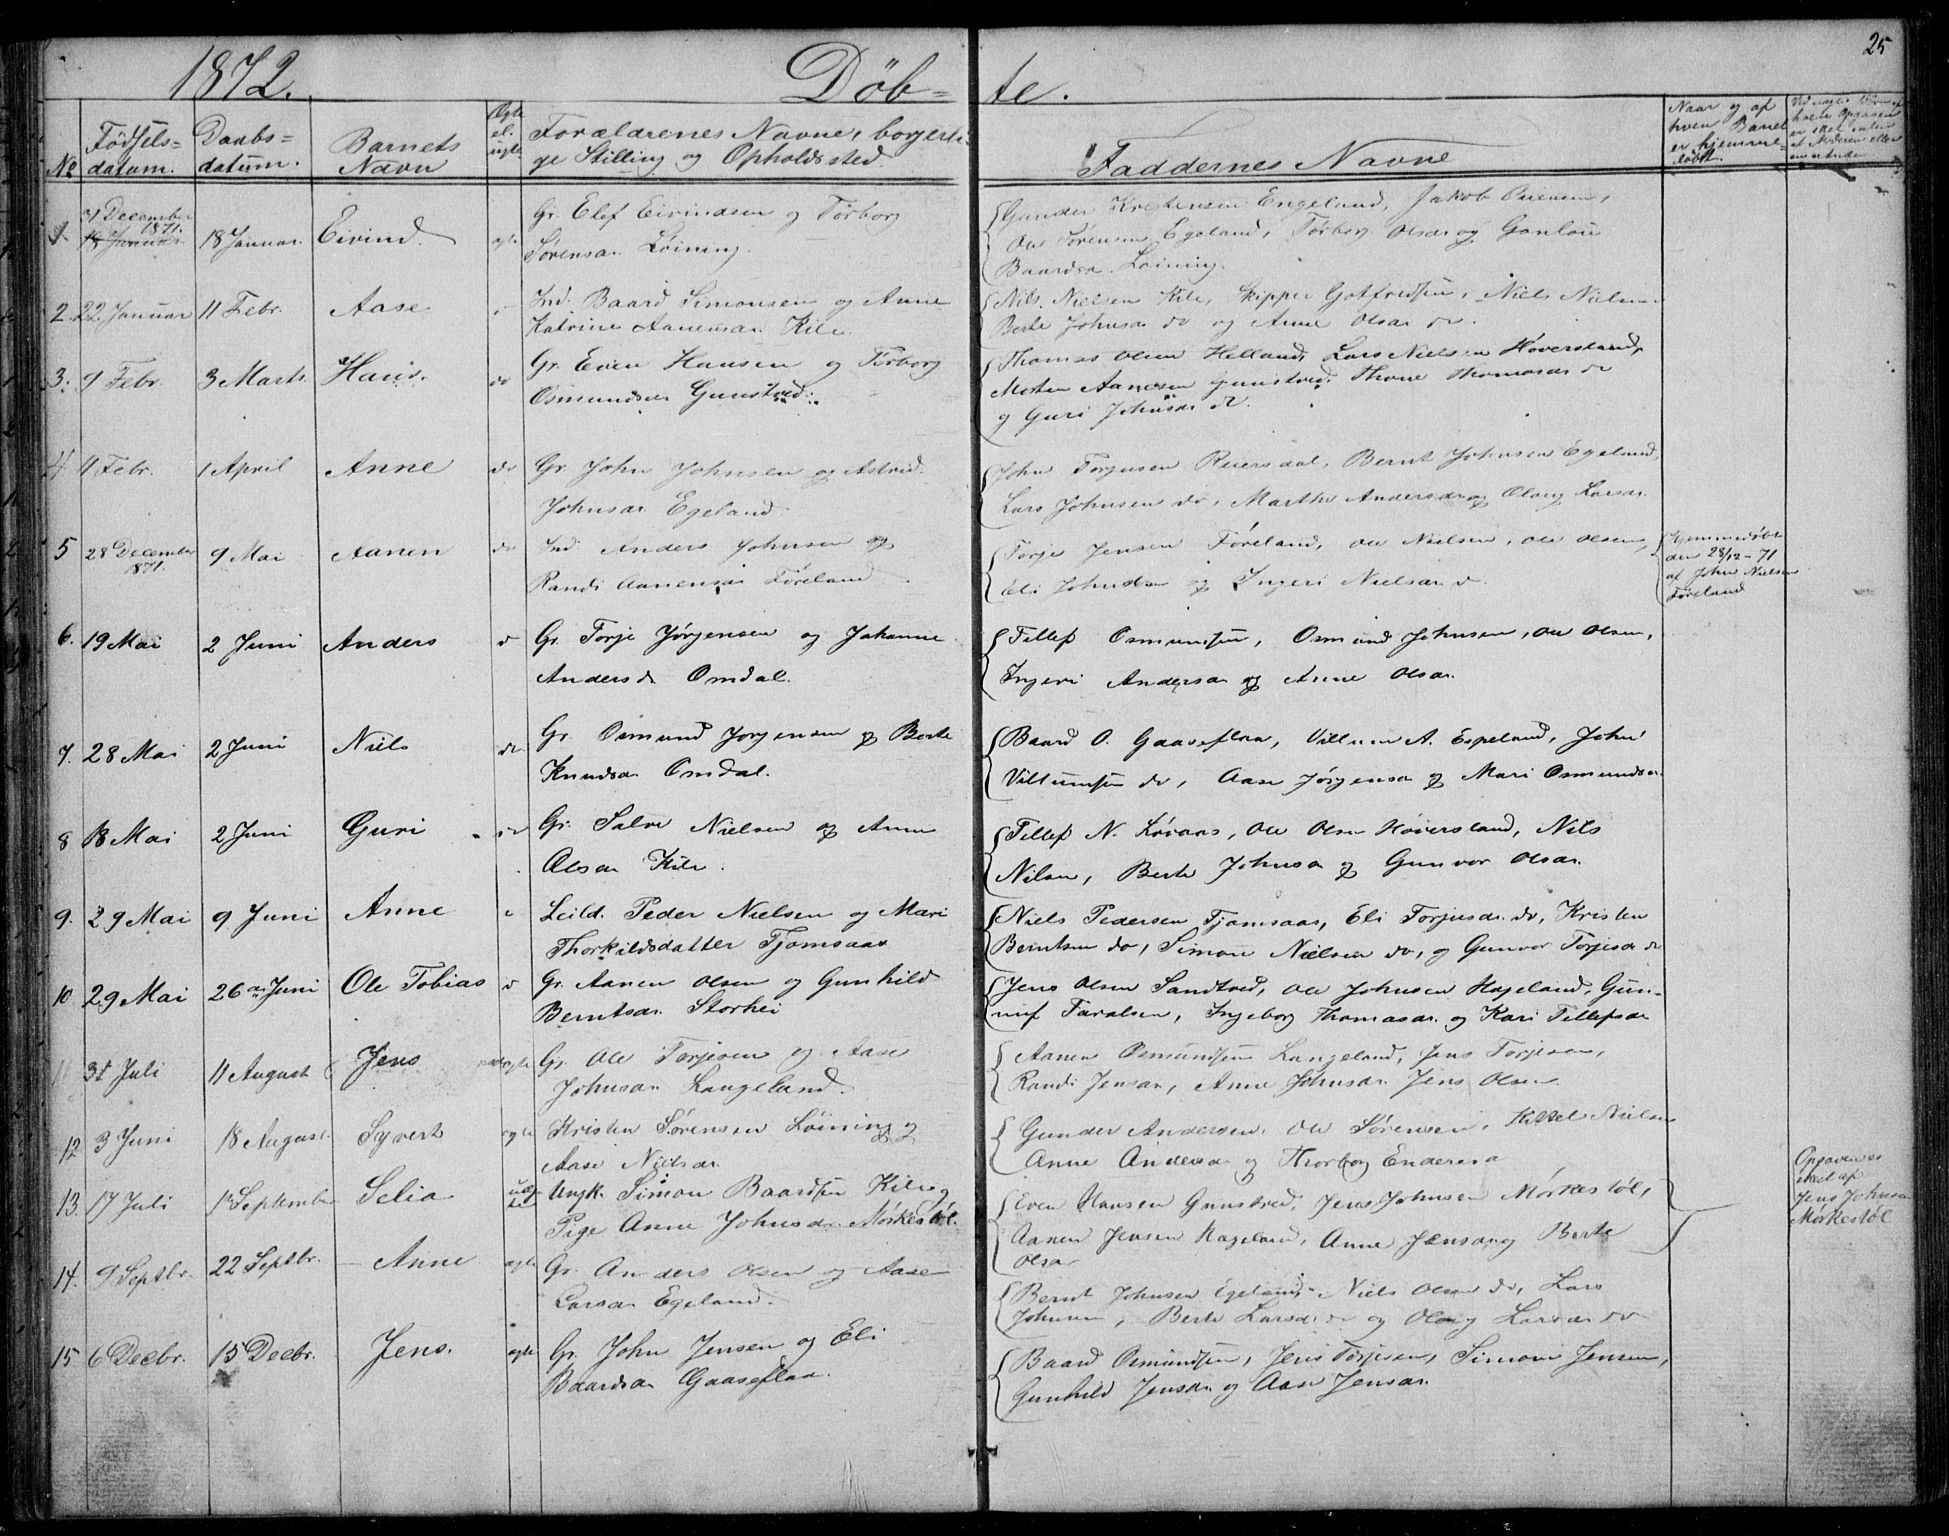 1872. Døb- te. 25
No Fødsels- datum. Daabs- datum. Barnets Navn Ægte el. uægte Forældrenes Navne, borgerli- ge Stilling og Opholdssted Faddernes Navne Naar og af hvem Barnet er hjemme- døbt.
31 December 1871.
1. 18 Januar 18 Januar. Eivind. ægte Gr. Elef Eivindsen og Tørborg
Sørensdr. Løining.
Gunder Kristensen Engeland, Jakob
Ole Sørensen Egeland, Tørborg Olsdr og Gonlou
Baardsdr. Løining.
2. 22 Januar 11 Febr. Aase Ind. Baard Simonsen og Anne
Katrine Aanensdr. Kile.
Nils Nielsen Kile, Skipper Gotfredsen, Niels Nielsen
Berte Johnsdr do og Anne Olsdr do.
3. 9 Febr. 3 Marts. Hans. do Gr. Even Hansen og Tørborg
Osmundsdr Gunstved.
Thomas Olsen Helland, Lars Nielsen Høversland,
Morten Aanesen Gunstved, Thone Thomasdr do
og Guri Johnsdr do.
4 11 Febr. 1 April Anne do Gr. John Johnsen og Astrid
Johnsdr. Egeland.
John Torgusen Reiersdal, Bernt Johnsen Egeland,
Lars Johnsen do, Marthe Andersdr og Olaug Larsdr.
5 28 December 1871. 9 Mai Aanen do Ind. Anders Johnsen og
Randi Aanensdr Føreland
Torje Jensen Føreland, Ole Nielsen, Ole Olsen,
Eli Johnsdr og Ingeri Nielsdr do.
Hjemmedøbt
den 28/12-71
af John Nielsen
Føreland
6. 19 Mai 2 Juni Anders do Gr. Torje Jørgensen og Johanne
Andersdr Omdal.
Tellef Osmundsen, Osmund Johnsen, Ole Olsen,
Ingeri Andersdr og Anne Olsdr.
7. 28 Mai 2 Juni Niels do. Gr. Osmund Jørgensen og Berte
Knudsdr Omdal.
Baard O. Gaaseflaa, Villum A. Espeland, John
Villumsen do, Aase Jørgensdr og Mari Osmundsdr.
8 18 Mai 2 Juni Guri do Gr. Salve Nielsen og Anne
Olsdr Kile.
Tellef N. Løvaas, Ole Olsen Høversland, Nils
Nilsen, Berte Johnsdr og Gunvor Olsdr.
9. 29 Mai 9 Juni Anne Leild. Peder Nielsen og Mari
Thorkildsdatter Tjomsaas
Niels Pedersen Tjomsaas, Eli Torjusdr do, Kristen
Berntsen do, Simon Nielsen do, og Gunvor Torjesdr do
10 29 Mai 26de Juni Ole Tobias do Gr. Aanen Olsen og Gunhild
Berntsdr. Storhei
Jens Olsen Sandtved, Ole Johnsen Hageland, Gun-
nuf Taralsen, Ingeborg Thomasdr. og Kari Tellefsdr
11 31 Juli 11 August Jens ægte Gr. Ole Torjesen og Aase
Johnsdr Langeland.
Aanen Osmundsen Langeland, Jens Torjesen,
Randi Jensdr, Anne Johnsdr. Jens Olsen.
12 3 Juni 18 August Syvert ægte Kristen Sørensen Løining og
Aase Nielsdr.
Gunder Andersen, Ole Sørensen, Kittel Nielsen
Anne Andersdr og Thorborg Endresdr
13. 17 Juli 1 September Selia uæg- te Ungk. Simon Baardsen Kile og
Pige Anne Johnsdr Mørkestøl.
Even Hansen Gunstved, Jens Johnsen Mørkestøl,
Aanen Jensen Hageland, Anne Jensdr og Berte
Olsdr
Opgaven er
skeet af
Jens Johnsen
Mørkestøl
14. 9 Septbr. 22 Septbr. Anne ægte Gr. Anders Olsen og Aase
Larsdr Egeland.
Bernt Johnsen Egeland, Niels Olsen do, Lars
Johnsen, Berte Larsdr do og Olaug Larsdr do
15 6 Decbr. 15 Decbr. Jens. ægte Gr. John Jensen og Eli
Baardsdr Gaaseflaa.
Baard Osmundsen, Jens Torjesen, Simon Jensen,
Gunhild Jensdr og Aase Jensdr.